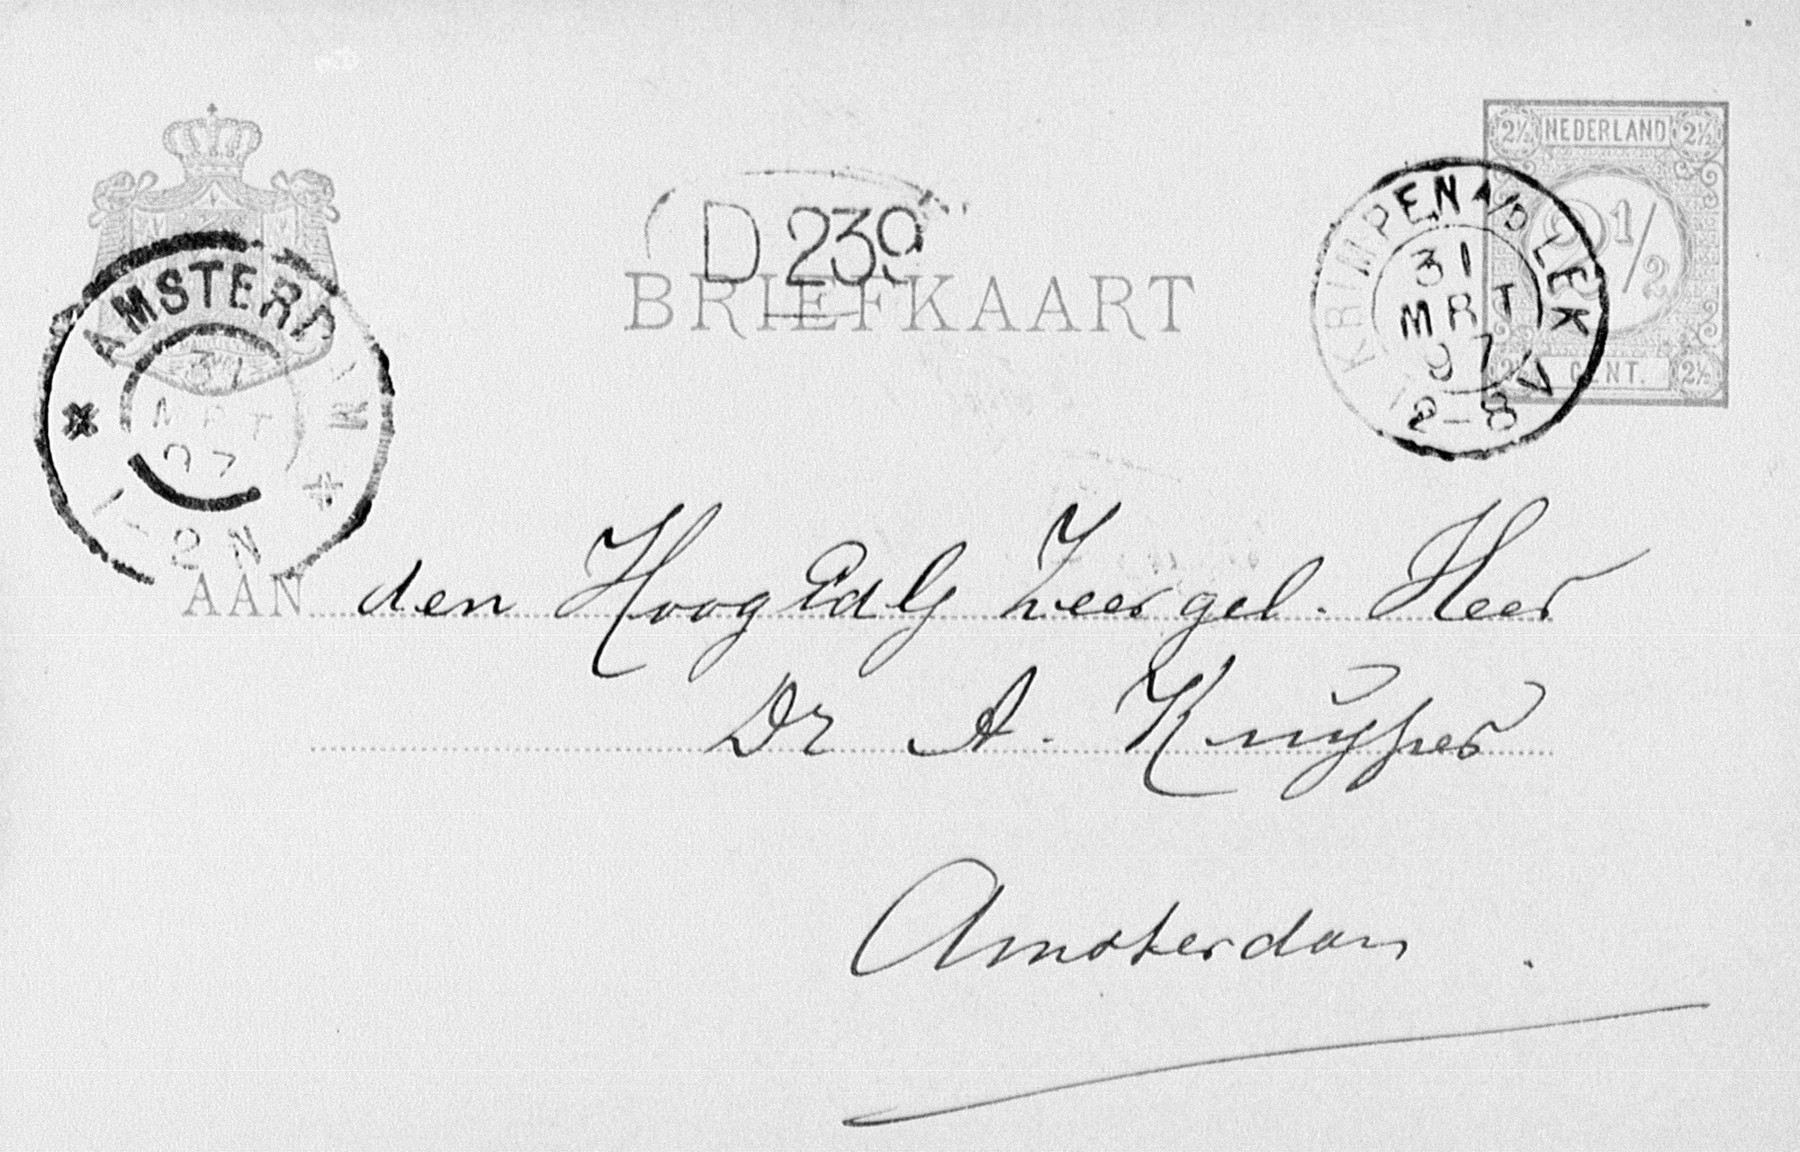 2½ NEDERLAND 2½
2½
D 239
BRIEFKAART
KRIMPEN A/D LEK
31
MRT
97
2-8V
CENT. 2½
AMSTERDAM
31
MRT
97
1-2N
AAN den HoogEdlG Zeergel. Heer
Dr A. Kuÿper
Amsterdam.